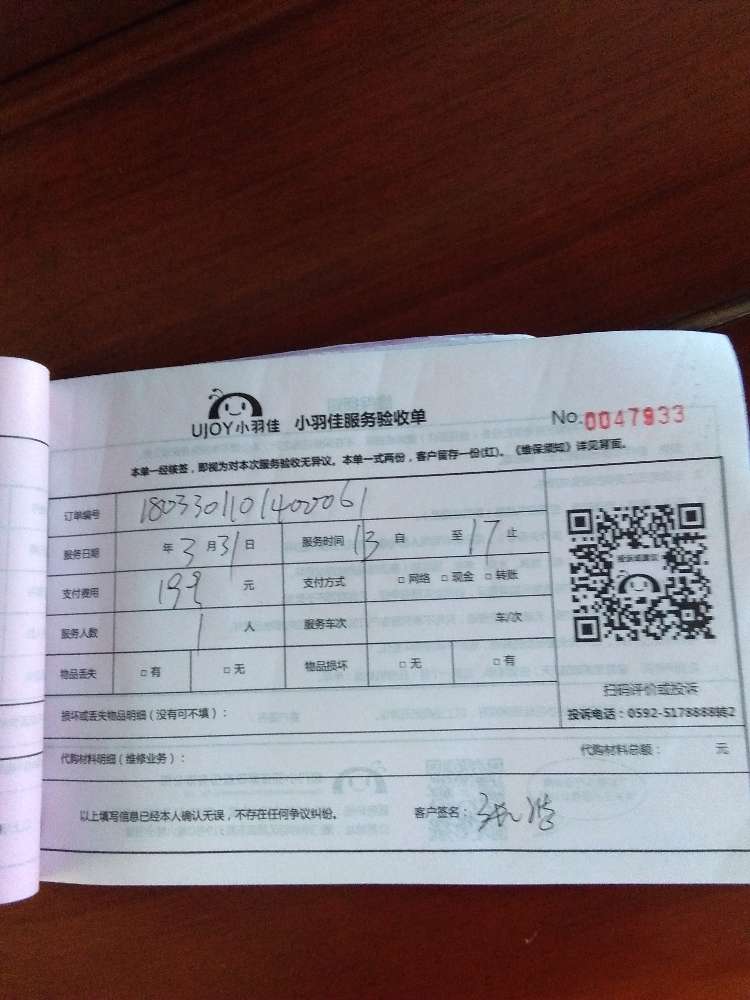 UJOY小羽佳 小羽佳服务验收单 No.0047933
本单一经核签，即视为对本次服务验收无异议。本单一式两份，客户留存一份(红)。《维保须知》详见背面。
订单编号 180330110140061
服务日期 年3月31日 服务时间 13自 至17止
支付费用 199元 支付方式 □网络 □现金 □转账
服务人数 1人 服务车次 车/次
物品丢失 □有 □无 物品损坏 □无 □有
扫码评价或投诉
损坏或丢失物品明细（没有可不填）： 投诉电话：0592-5178888转2
代购材料明细（维修业务）： 代购材料总额： 元
以上填写信息已经本人确认无误，不存在任何争议纠纷。 客户签名：